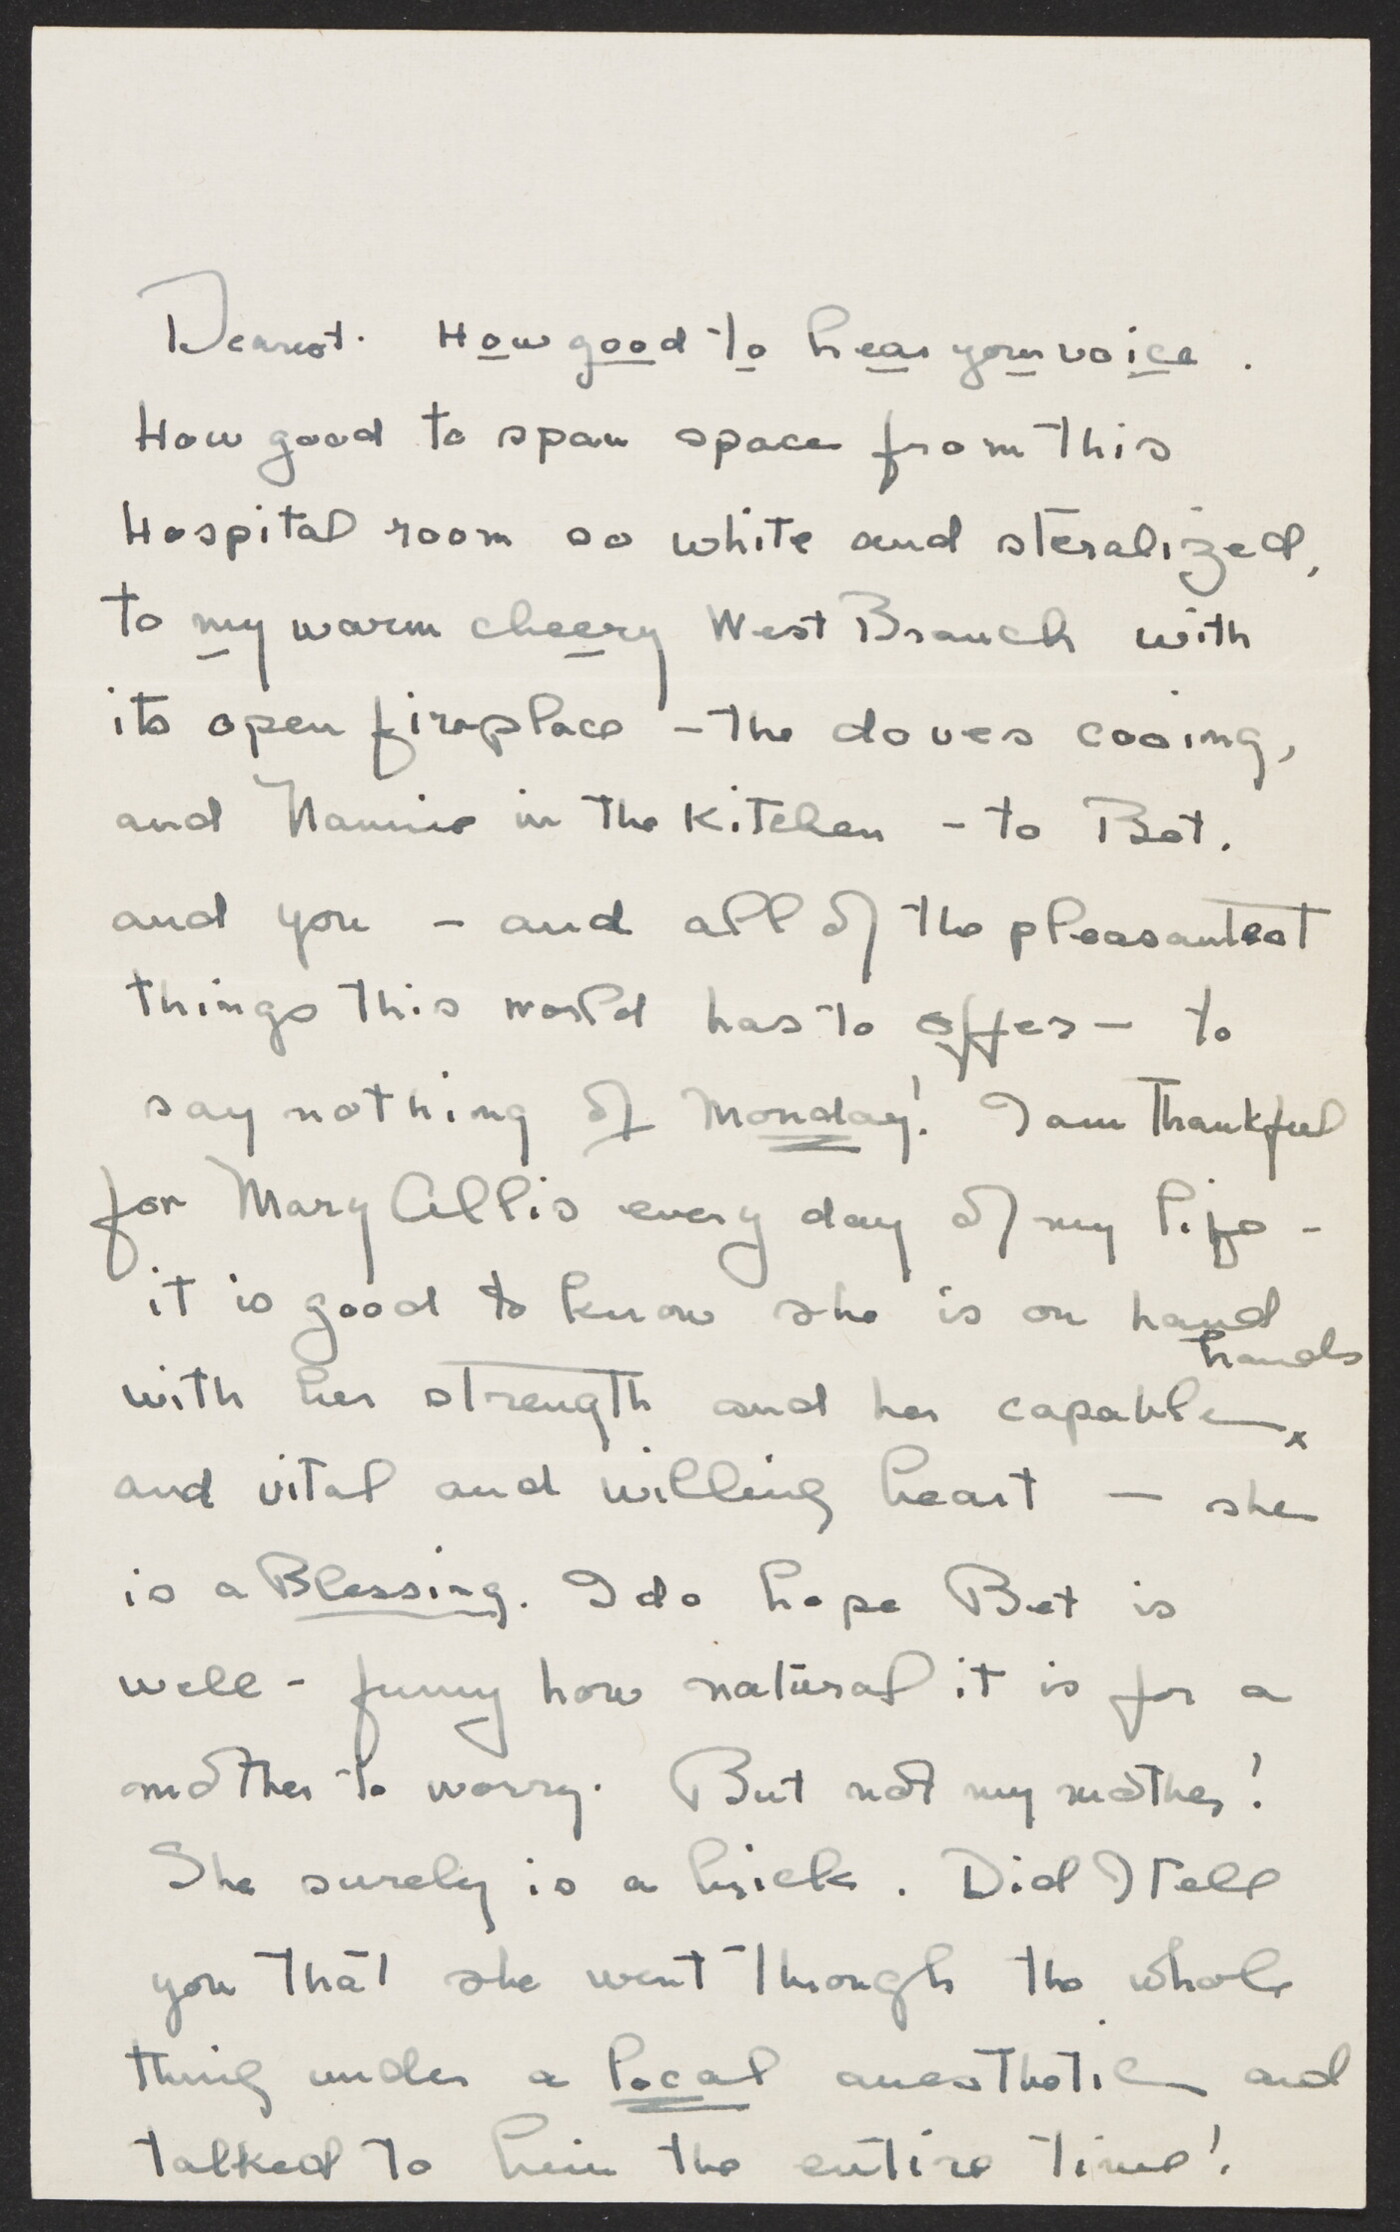 Dearest. How good to hear your voice.
How good to span space from this
Hospital room so white and steralized,
to my warm cheery West Branch with
its open fireplace - the doves cooing,
and Nannie in the kitchen - to Bet.
and you - and all of the pleasantest
things this world has to offer - to
say nothing of Monday! I am thankful
for Mary Allis every day of my life -
it is good to know she is on hand
hands
with her strength and her capable x
and vital and willing heart - she
is a Blessing. I do hope Bet is
well - funny how natural it is for a
mother to worry. But not my mother!
She surely is a brick. Did I tell
you that she went through the whole
thing under a local anesthetic and
talked to him the entire time!